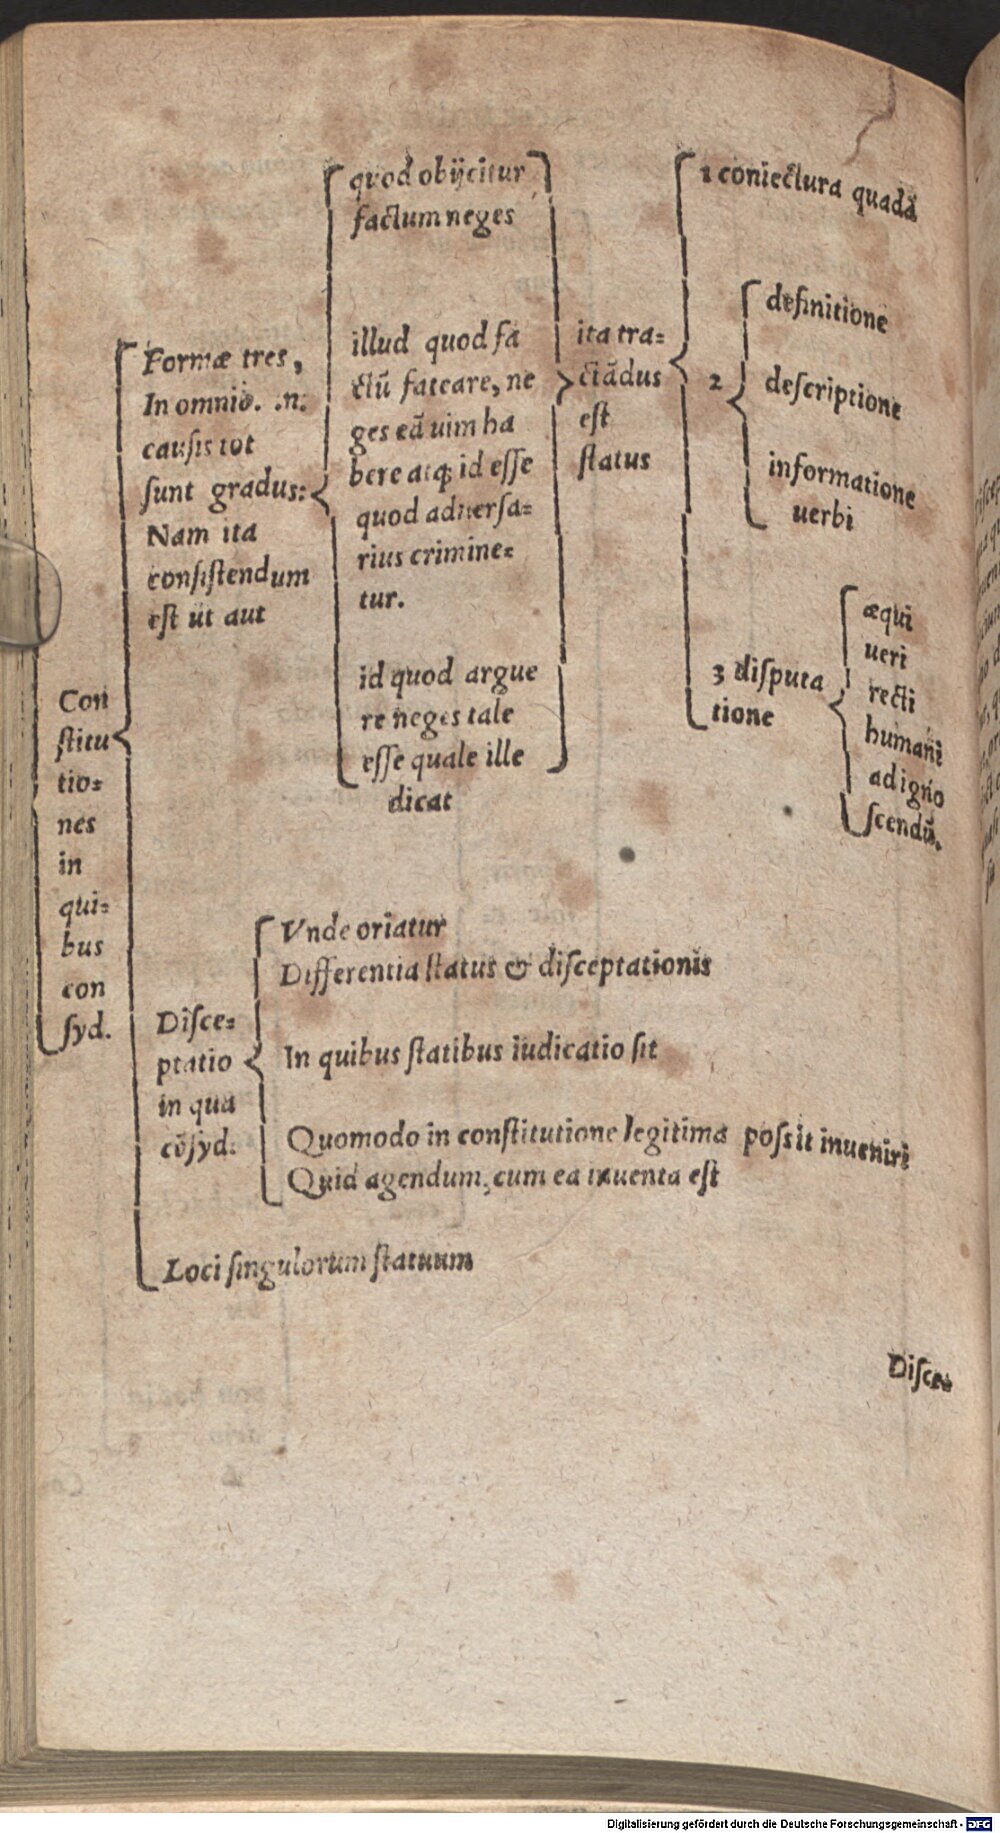 Con
ſtitu
tio=
nes
in
qui=
bus
con
ſyd.
Formæ tres,
In omnib. .n.
cauſis tot
ſunt gradus:
Nam ita
conſiſtendum
eſt ut aut
quod obijcitur
factum neges
illud quod fa
ctũ fateare, ne
ges eã uim ha
bere atq; id eſſe
quod aduerſa=
rius crimine=
tur.
id quod argue
re neges tale
eſſe quale ille
dicat
ita tra=
ctãdus
eſt
ſtatus
1 coniectura quadã
2
definitione
deſcriptione
informatione
uerbi
3 diſputa
tione
æqui
ueri
recti
humani
ad igno
ſcendũ.
Diſce=
ptatio
in qua
cõſyd.
Vnde oriatur
Differentia ſtatus & diſceptationis
In quibus ſtatibus iudicatio ſit
Quomodo in conſtitutione legitima poſsit inueniri
Quid agendum, cum ea inuenta eſt
Loci ſingulorum ſtatuum
Diſce=
Digitalisierung gefördert durch die Deutsche Forschungsgemeinschaft - DFG